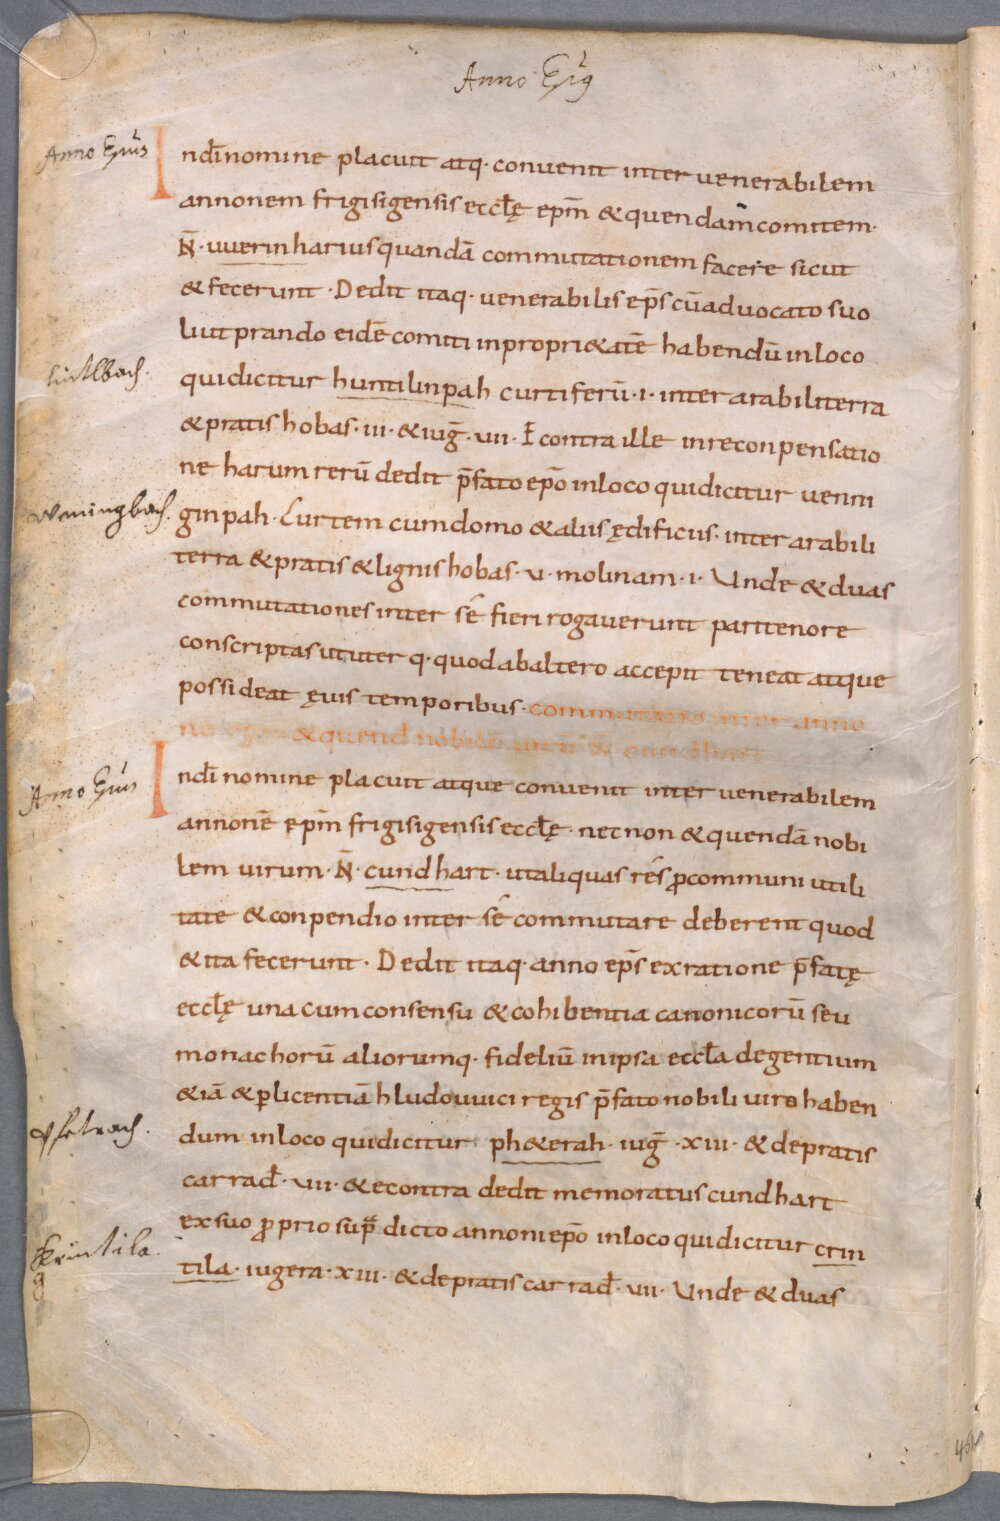 Anno Epus
Anno Epus
Indi nomine placuit atq· convenit inter venerabilem
annonem frigisigensis eccłę epm̄ & quendam comitem·
N̄· uuerinharius quandā commutationem facere sicut
& fecerunt· Dedit itaq· venerabilis ep̄s cū advocato suo
liutprando eidē comiti in propri&atē habendū in loco
hintlbach.
qui dicitur huntilinpah curtiferū·i· inter arabili terra
& pratis hobas·iii·& iuḡ·vii· Econtra ille in reconpensatio
ne harum rerū dedit p̄fato ep̄o in loco qui dicitur venni
wenningbach.
ginpah· Curtem cum domo & aliis ędificiis· inter arabili
terra & pratis & lignis hobas·v· molinam·i· Unde & duas
commutationes inter sé fieri rogaverunt pari tenore
conscriptas ut uter q· quod ab altero accepit teneat atque
possideat ęvis temporibus· commutatio inter anno
& quend nobilē cundhart
Anno Epus
Indi nomine placuit atque convenit inter venerabilem
annonē epm̄ frigisigensis eccłę· nec non & quendā nobi
lem virum·N̄· cundhart· ut aliquas rés ꝓ communi utili
tate & conpendio inter sé commutare deberent quod
& ita fecerunt· Dedit itaq· anno ep̄s ex ratione p̄fatę
eccłę una cum consensu & cohibentia canonicorū seu
monachorū aliorumq· fideliū in ipsa eccła degentium
&iā & ꝑ licentiā hludouuici regis p̄fato nobili viro haben
pfetrach.
dum in loco qui dicitur ph&erah· iuḡ·xiii· & de pratis
carrad̄·vii· & econtra dedit memoratus cundhart
ex suo ꝓprio sup̄dicto annoni ep̄o in loco qui dicitur crin
Krintila.
g
tila· iugera·xiii· & de pratis carrad̄·vii· Unde & duas